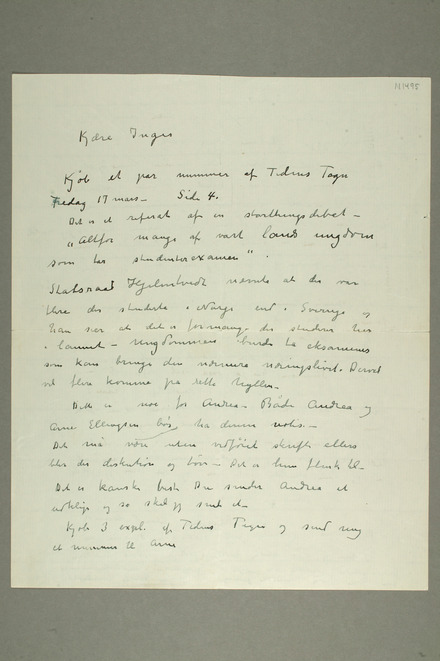 N1495
Kjære Inger
Kjøb et par nummer af Tidens Tegn
Fredag 17 mars – Side 4.
Det er et referat af en storthingsdebat –
"Altfor mange af vort lands ungdom
som tar studenterexamen".
Statsraad Hjelmtveit nævnte at der var
flere der studerte i Norge end i Sverige og
han sier at det er for mange der studerer her
i landet – ungdommen burde ta eksamener
som kan bringe den nærmere næringslivet. Derved
vil flere komme fra rette hyllen.
Dette er noe for Andrea. Både Andrea og
Arne Ellingsen bør ha denne notis. –
Det må være uten vedføiet skrift ellers
blir det diskution og
Det er kanske bedst Du sender Andrea et
utklip og så skal jeg sende et –
Kjøb 3 expl. af Tidens Tegn og send mig
et nummer til Arne